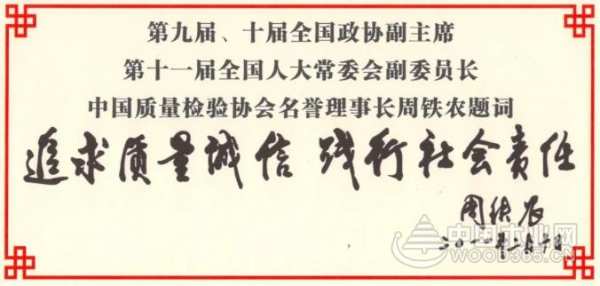 第九届、十届全国政协副主席
第十一届全国人大常委会副委员长
中国质量检验协会名誉理事长周铁农题词
追求质量诚信 践行社会责任
周铁农
中国木业网
WOOD365.CN